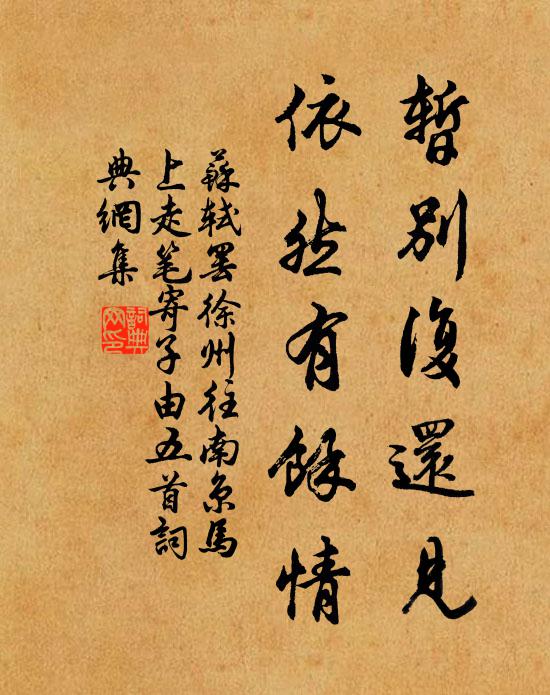 暫別復還見
依然有餘情
蘇軾罷徐州往南京馬
上走笔寄子由五首詞
典網集
詞典
网印